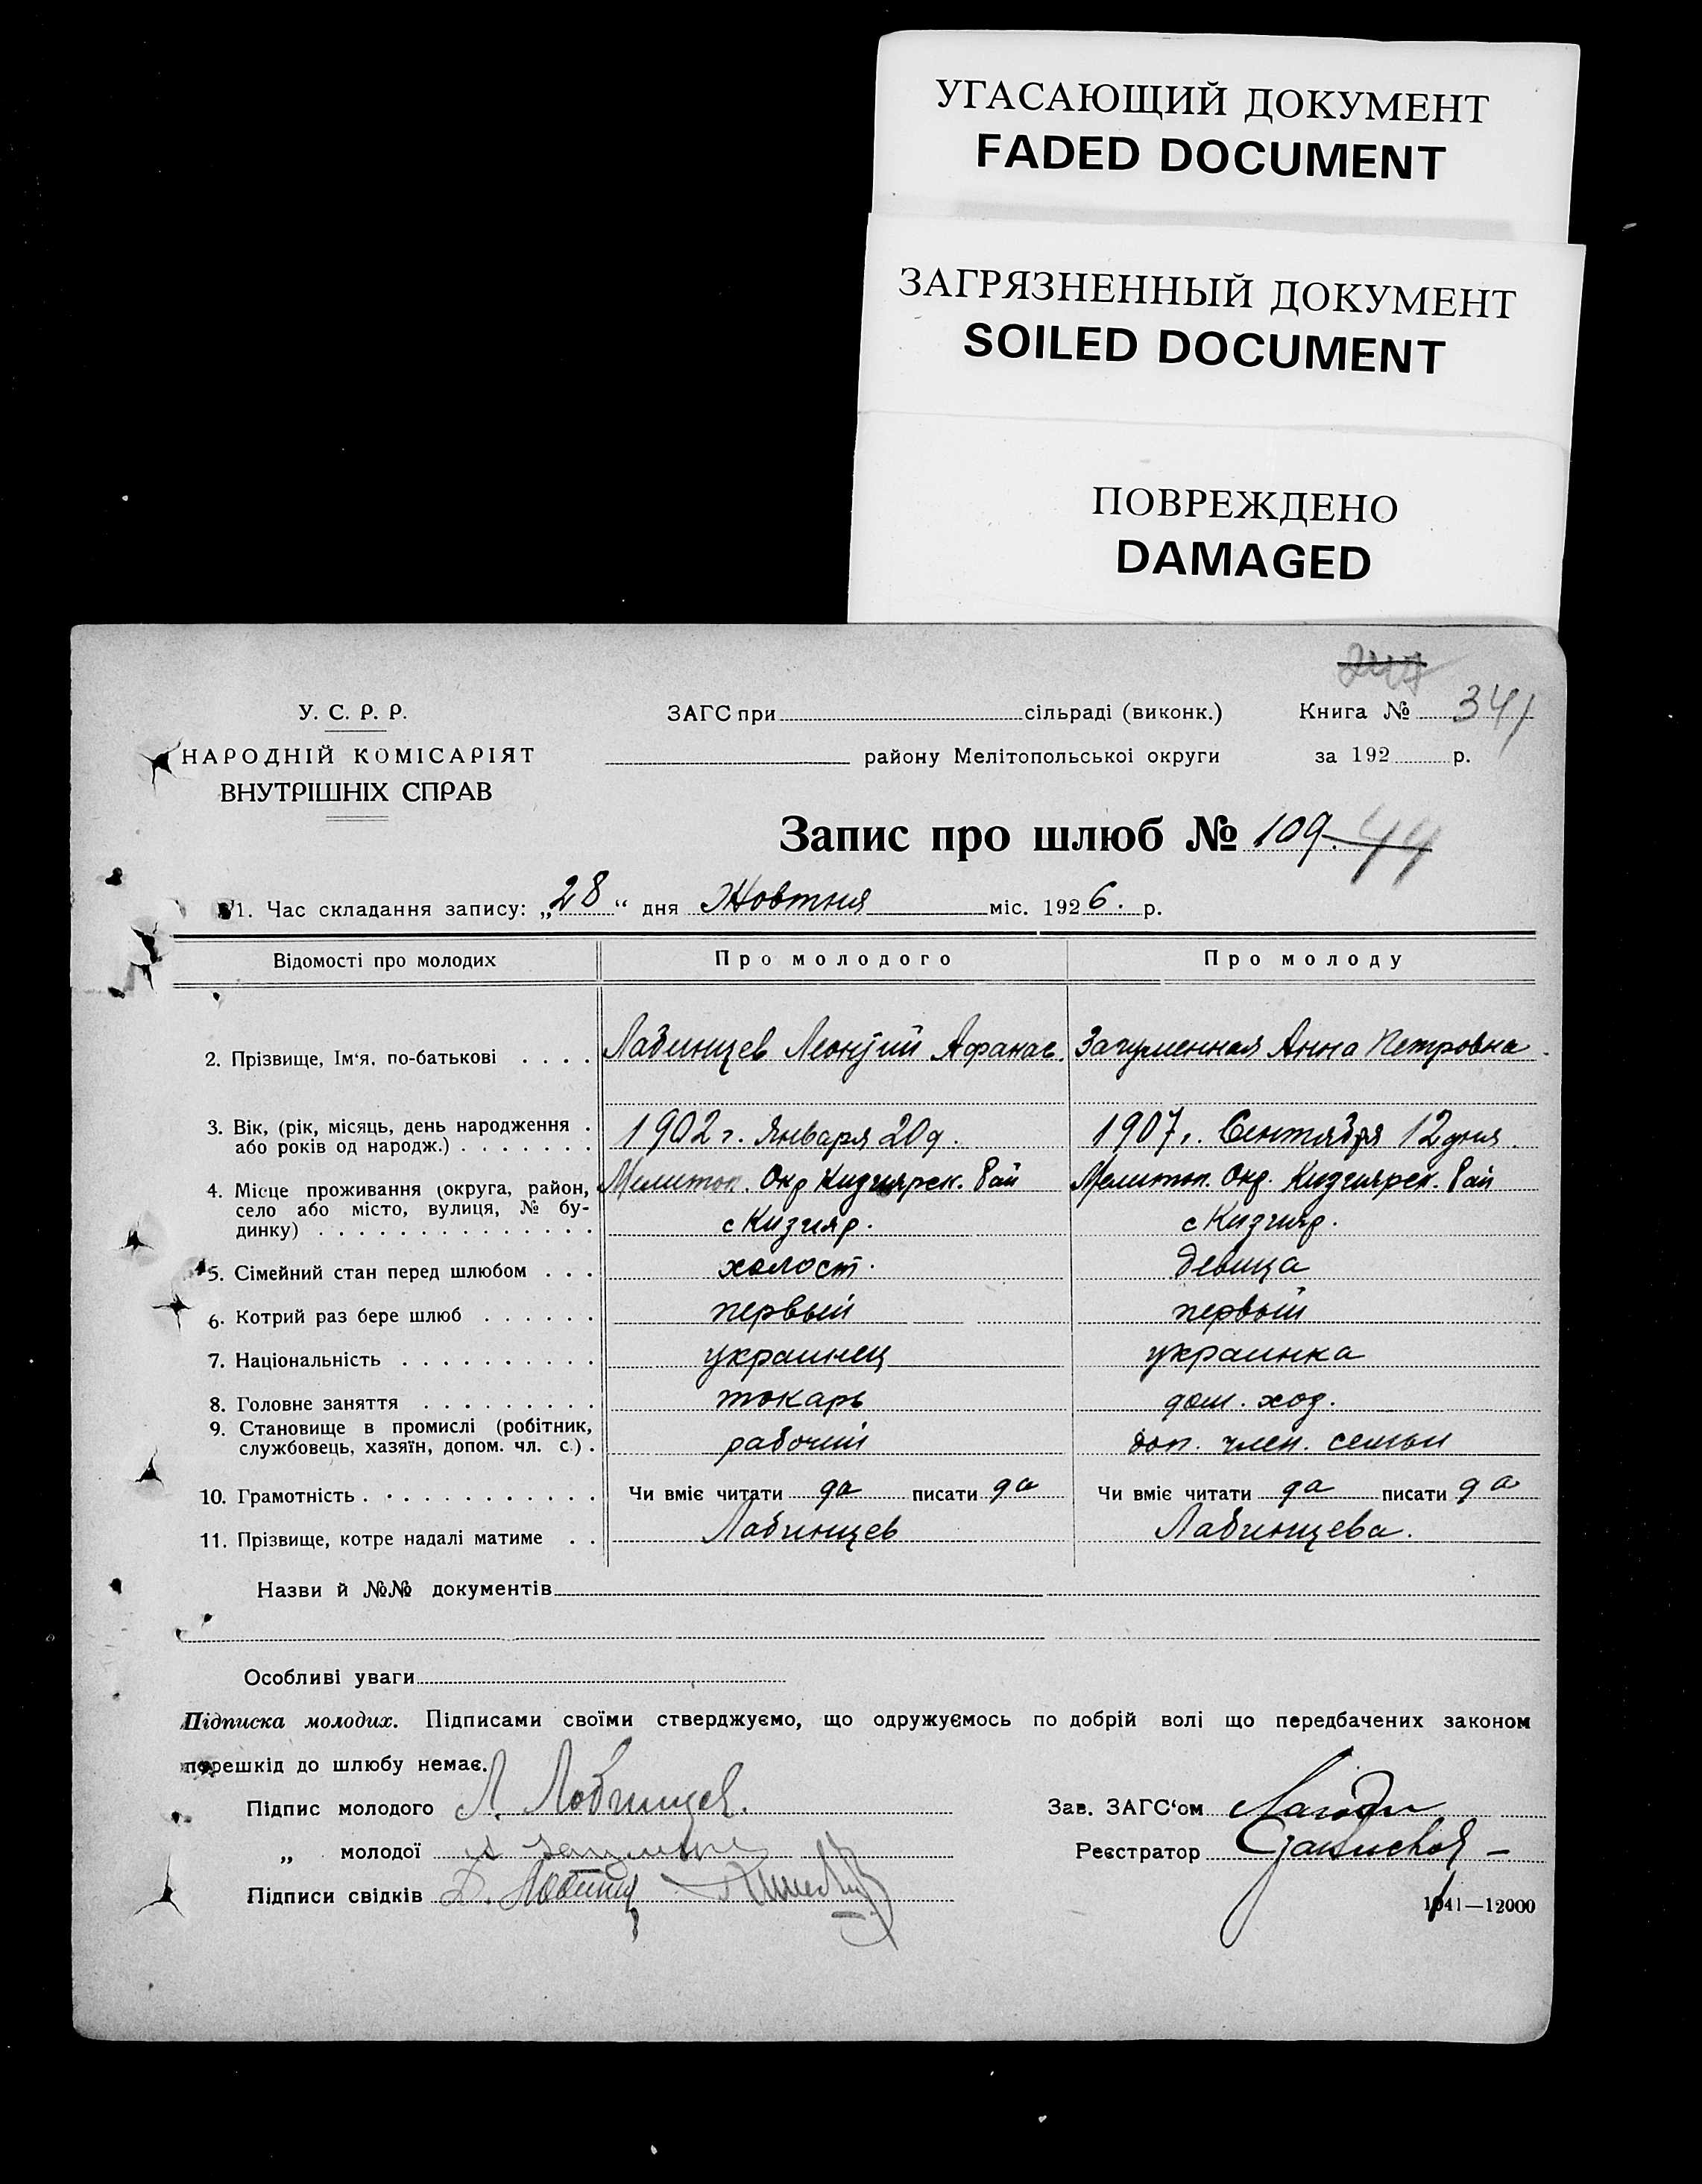 УГАСАЮЩИЙ ДОКУМЕНТ
FADED DOCUMENT
ЗАГРЯЗНЕННЫЙ ДОКУМЕНТ
SOILED DOCUMENT
ПОВРЕЖДЕНО
DAMAGED
247
У. С. Р. Р.
НАРОДНІЙ КОМІСАРІЯТ
ВНУТРІШНІХ СПРАВ
ЗАГС при сільраді (виконк.)
району Мелітопольської округи
Книга № 341
за 192 р.
Запис про шлюб № 109. 44
1. Час складання запису: „28“ дня Жовтня міс. 1926. р.
Відомості про молодих Про молодого Про молоду
2. Прізвище, Ім'я, по-батькові . . . . Лабинцев Леонтий Афанас. Загуменная Анна Петровна
3. Вік, (рік, місяць, день народження .
або років од народж.) . . . . . . . 1902 г. Января 20 д. 1907 г. Сентября 12 дня.
4. Місце проживання (округа, район, Мелитоп. Окр Кизиярск. Рай Мелитоп. Окр. Кизиярск. Рай
село або місто, вулиця, № бу-
динку) . . . . . . . . . . . . . . с Кизияр. с Кизияр.
5. Сімейний стан перед шлюбом . . . холост. девица
6. Котрий раз бере шлюб . . . . . . первый первый
7. Національність . . . . . . . . . . украинец украинка
8. Головне заняття . . . . . . . . . токарь дом. хоз.
9. Становище в промислі (робітник,
службовець, хазяїн, допом. чл. с.) . рабочий доп. член. семьи
10. Грамотність . . . . . . . . . . . . Чи вміє читати да писати да Чи вміє читати да писати да
11. Прізвище, котре надалі матиме . . Лабинцев Лабинцева.
Назви й №№ документів
Особливі уваги
Підписка молодих. Підписами своїми стверджуємо, що одружуємось по добрій волі що передбачених законом
перешкід до шлюбу немає.
Підпис молодого Л. Лобинцев. Зав. ЗАГС'ом
„ молодої Реєстратор
Підписи свідків
1041—12000